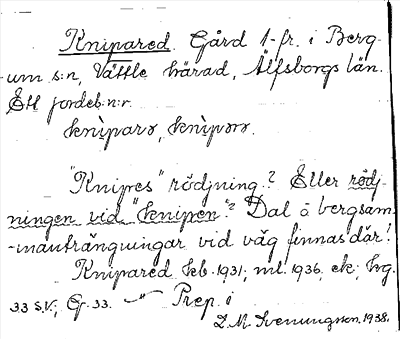 Knipared. Gård 1-fr. i Berg-
um s:n, Vättle härad, Älfsborgs län.
Ett jordeb.n:r.
knìparə, knìpərə.
"Knipes" rödjning? Eller rödj-
ningen vid "knipen"? Dal o bergsam-
-manträngningar vid väg finnas där!
Knipared. kb. 1931; ml. 1936, ek; hvg.
33 S.V.; G. 33. Prep. i
L.M. Svenungsson. 1938.